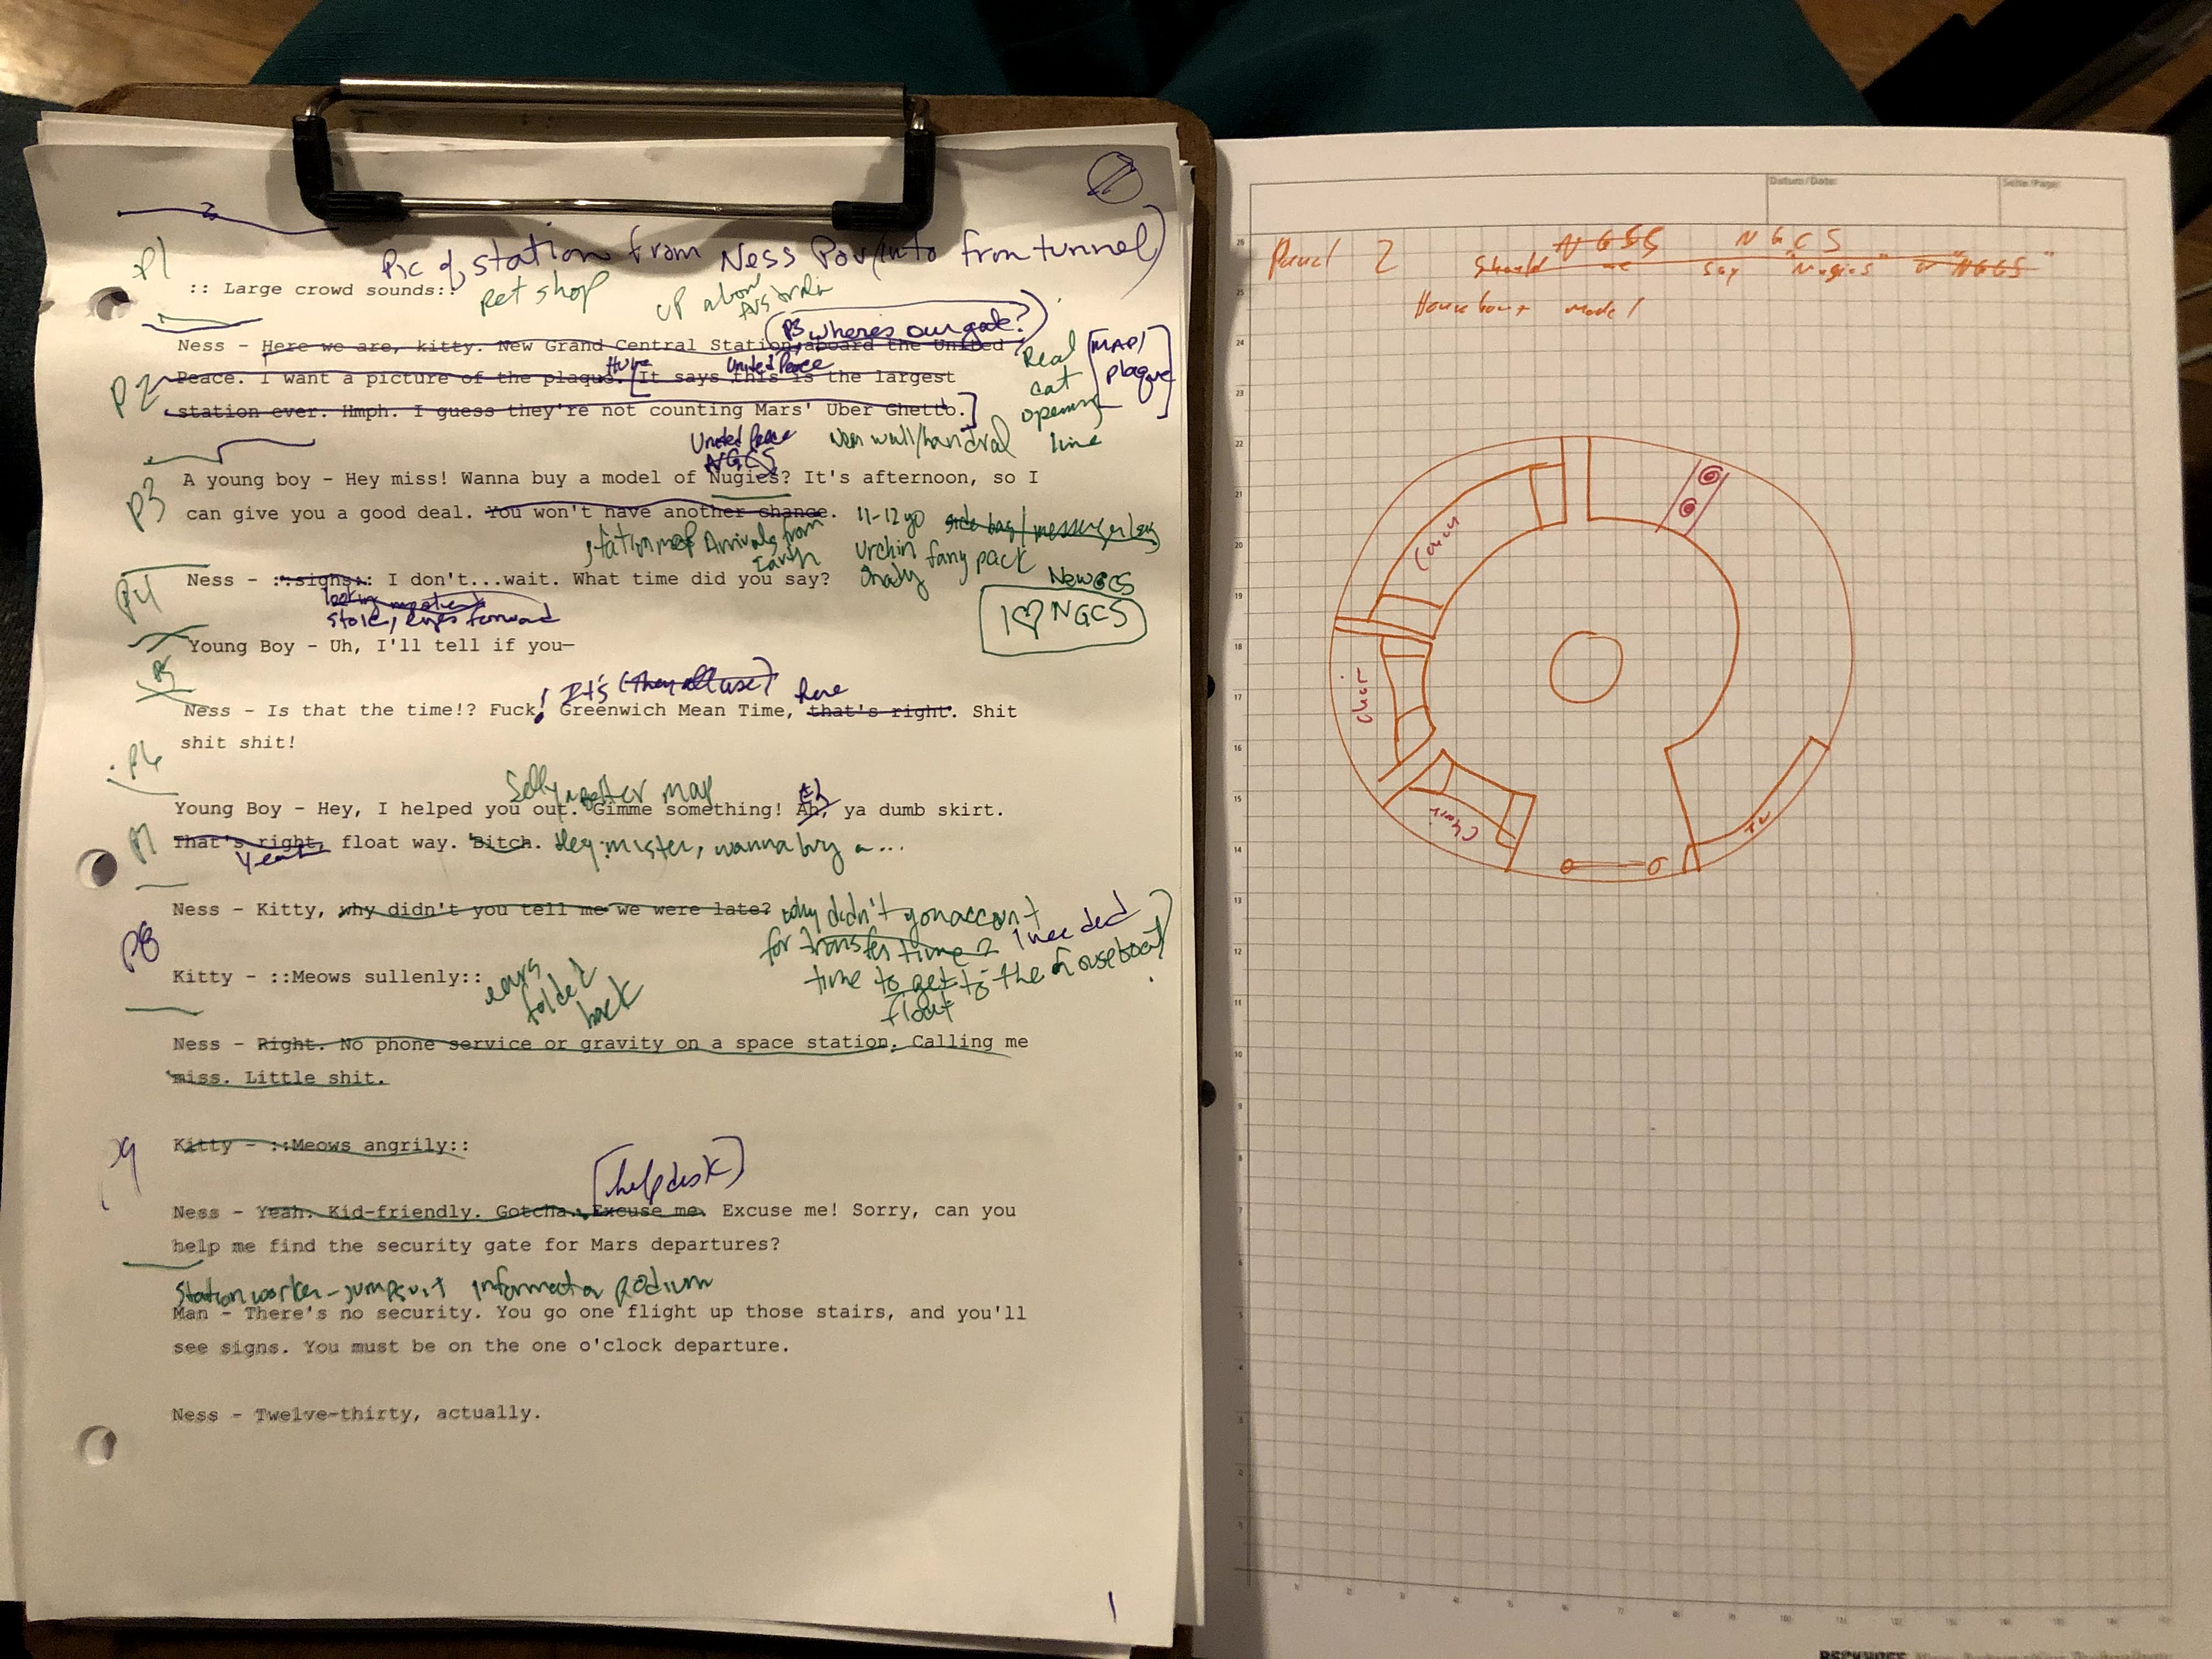 1
2
P1
Pic of station from Ness POV (into from tunnel)
:: Large crowd sounds::
pet shop
up above
P3 where's our gate?
Ness - Here we are, kitty. New Grand Central Station, aboard the United
United Peace
P2
Peace. I want a picture of the plaque. It says this is the largest
station ever. Hmph. I guess they're not counting Mars' Uber Ghetto.
Real
cat
opening
line
[MAP/
plaque]
United Peace
NGCS
wall/handrail
P3
A young boy - Hey miss! Wanna buy a model of Nugies? It's afternoon, so I
can give you a good deal. You won't have another chance.
station map Arrivals from
Earth
11-12 yo
urchin
shady
side bag/messenger bag
fany pack
P4
Ness - ::sighs:: I don't...wait. What time did you say?
looking impatient
stoic, eyes forward
New GCS
I ♡ NGCS
Young Boy - Uh, I'll tell if you—
P5
It's (they all use) here
Ness - Is that the time!? Fuck! Greenwich Mean Time, that's right. Shit
shit shit!
P6
Selly poster map
Eh
Young Boy - Hey, I helped you out. Gimme something! Ah, ya dumb skirt.
P7
That's right, float way. Bitch. Hey mister, wanna buy a...
Yeah
Ness - Kitty, why didn't you tell me we were late?
why didn't you account
for transfer time? I needed
time to get to the houseboat
float
P8
Kitty - ::Meows sullenly::
ears
folded
back
Ness - Right. No phone service or gravity on a space station. Calling me
miss. Little shit.
P9
Kitty - ::Meows angrily::
[help desk]
Ness - Yeah. Kid-friendly. Gotcha. Excuse me. Excuse me! Sorry, can you
help me find the security gate for Mars departures?
Station worker - jumpsuit information podium
Man - There's no security. You go one flight up those stairs, and you'll
see signs. You must be on the one o'clock departure.
Ness - Twelve-thirty, actually.
1
Datum/Date:
Seite/Page:
Panel 2
NGSS NGCS
should we say "Nugies" or "NGCS"
House boat model
Couch
Chair
Chair
TV
26
25
24
23
22
21
20
19
18
17
16
15
14
13
12
11
10
9
8
7
6
5
4
3
2
1